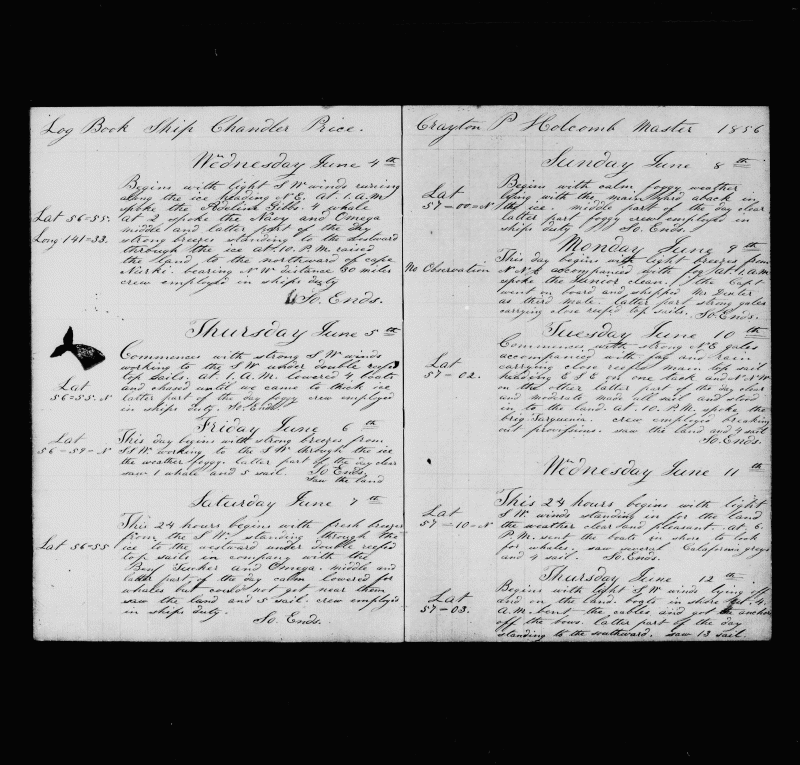 Log Book Ship Chandler Price.
Wednesday June 4th
Begins with light S W winds runing
along the ice heading N E. at. 1. A.M
spoke the Adeline Gibbs. 4 whale
Lat 56=55. at 2 spoke the Navy and Omega
middle and latter part of the day
Long 141=33. strong breezes standing to the Eastward
through the ice at. 10. P.M. raised
the land, to the northward of cape
bearing N W distance 30 miles
crew employed in ships duty
So. Ends.
Thursday June 5th
Commences with strong S W winds
working to the S W under double reefed
top sails. at. 1. A.M. lowered 4 boats
Lat and chased until we came to thick ice
56=55. N latter part of the day foggy crew employed
in ships duty. So. Ends.
Friday June 6th
Lat This day begins with strong breezes from
56-59-N SSW working to the S W through the ice
the weather foggy. latter part of the day clear
saw 1 whale and 5 sail. So Ends.
Saw the land
Saturday June 7th
This 24 hours begins with fresh breezes
from the S W. standing through the
Lat 56=55 ice to the westward under double reefed
top sails in company with the
Ben Tucker and Omega. middle and
latter part of the day calm lowered for
whales but could not get near them
saw the land and 5 sail. crew employed
in ships duty.
So. Ends.
Crayton P Holcomb Master 1856
Sunday June 8th
Begins with calm foggy weather
Lat lying with the main yard aback in
57-00=N the ice. middle part of the day clear
latter part foggy crew employed in
ships duty So. Ends.
Monday June 9th
This day begins with light breezes from
No Observation N N E accompanied with fog at. 1. A.M.
spoke the clean. the Capt
went on board and shipped Mr
as third mate. latter part strong gales
carrying close reefed top sails. So. Ends.
Tuesday June 10th
Commences with strong N E gales
accompanied with fog and rain
Lat carrying close reefed main top sail
57-02. heading E S E on one tack and N N W
on the other latter part of the day clear
and moderate made all sail and stood
in to the land. at. 10. P.M. spoke the
brig crew employed breaking
out provisions. saw the land and 4 sail
So. Ends.
Wednesday June 11th
This 24 hours begins with light
Lat S W. winds standing in for the land
57-10=N the weather clear and pleasant. at. 6.
P.M. sent the boats in shore to look
for whales. saw several California greys
and 4 sail. So. Ends.
Thursday June 12th
Begins with light S W winds lying off
Lat and in the land. boats in shore at. 4.
57-03. A.M. bent the cables and got the anchors
off the bows. latter part of the day
standing to the southward. saw 13 sail.